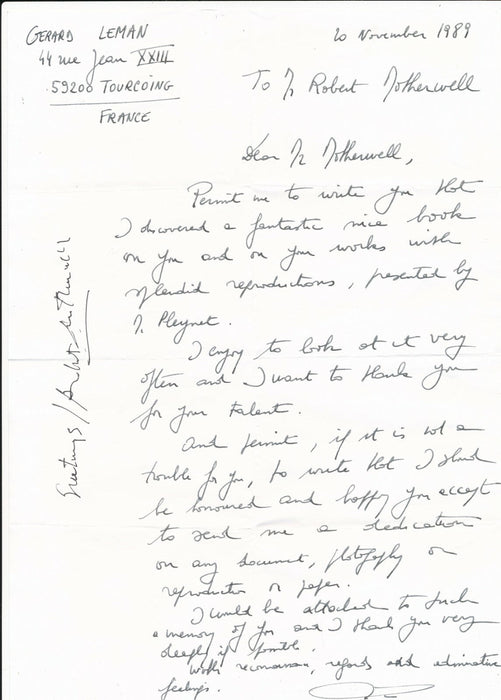 GERARD LEMAN
44 rue Jean XXIII
59200 TOURCOING
FRANCE
20 November 1989
To Mr Robert Motherwell
Dear Mr Motherwell,
Permit me to write you that
I discovered a fantastic nice book
on you and on your works with
splendid reproductions, presented by
M. Pleynet.
I enjoy to look at it very
often and I want to thank you
for your talent.
And permit, if it is not a
trouble for you, to write that I should
be honoured and happy you accept
to send me a dedication
on any document, photography or
reproduction or paper.
I would be attached to such
a memory of you and I thank you very
deeply if possible.
With regards and admirative
feelings.
Greetings / Robert Motherwell